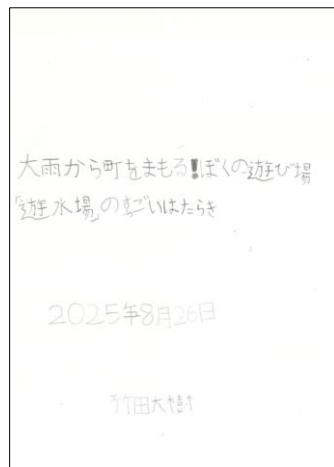 大雨から町をまもる!ぼくの遊び場
「遊水場」のすごいはたらき
2025年8月26日
竹田大樹